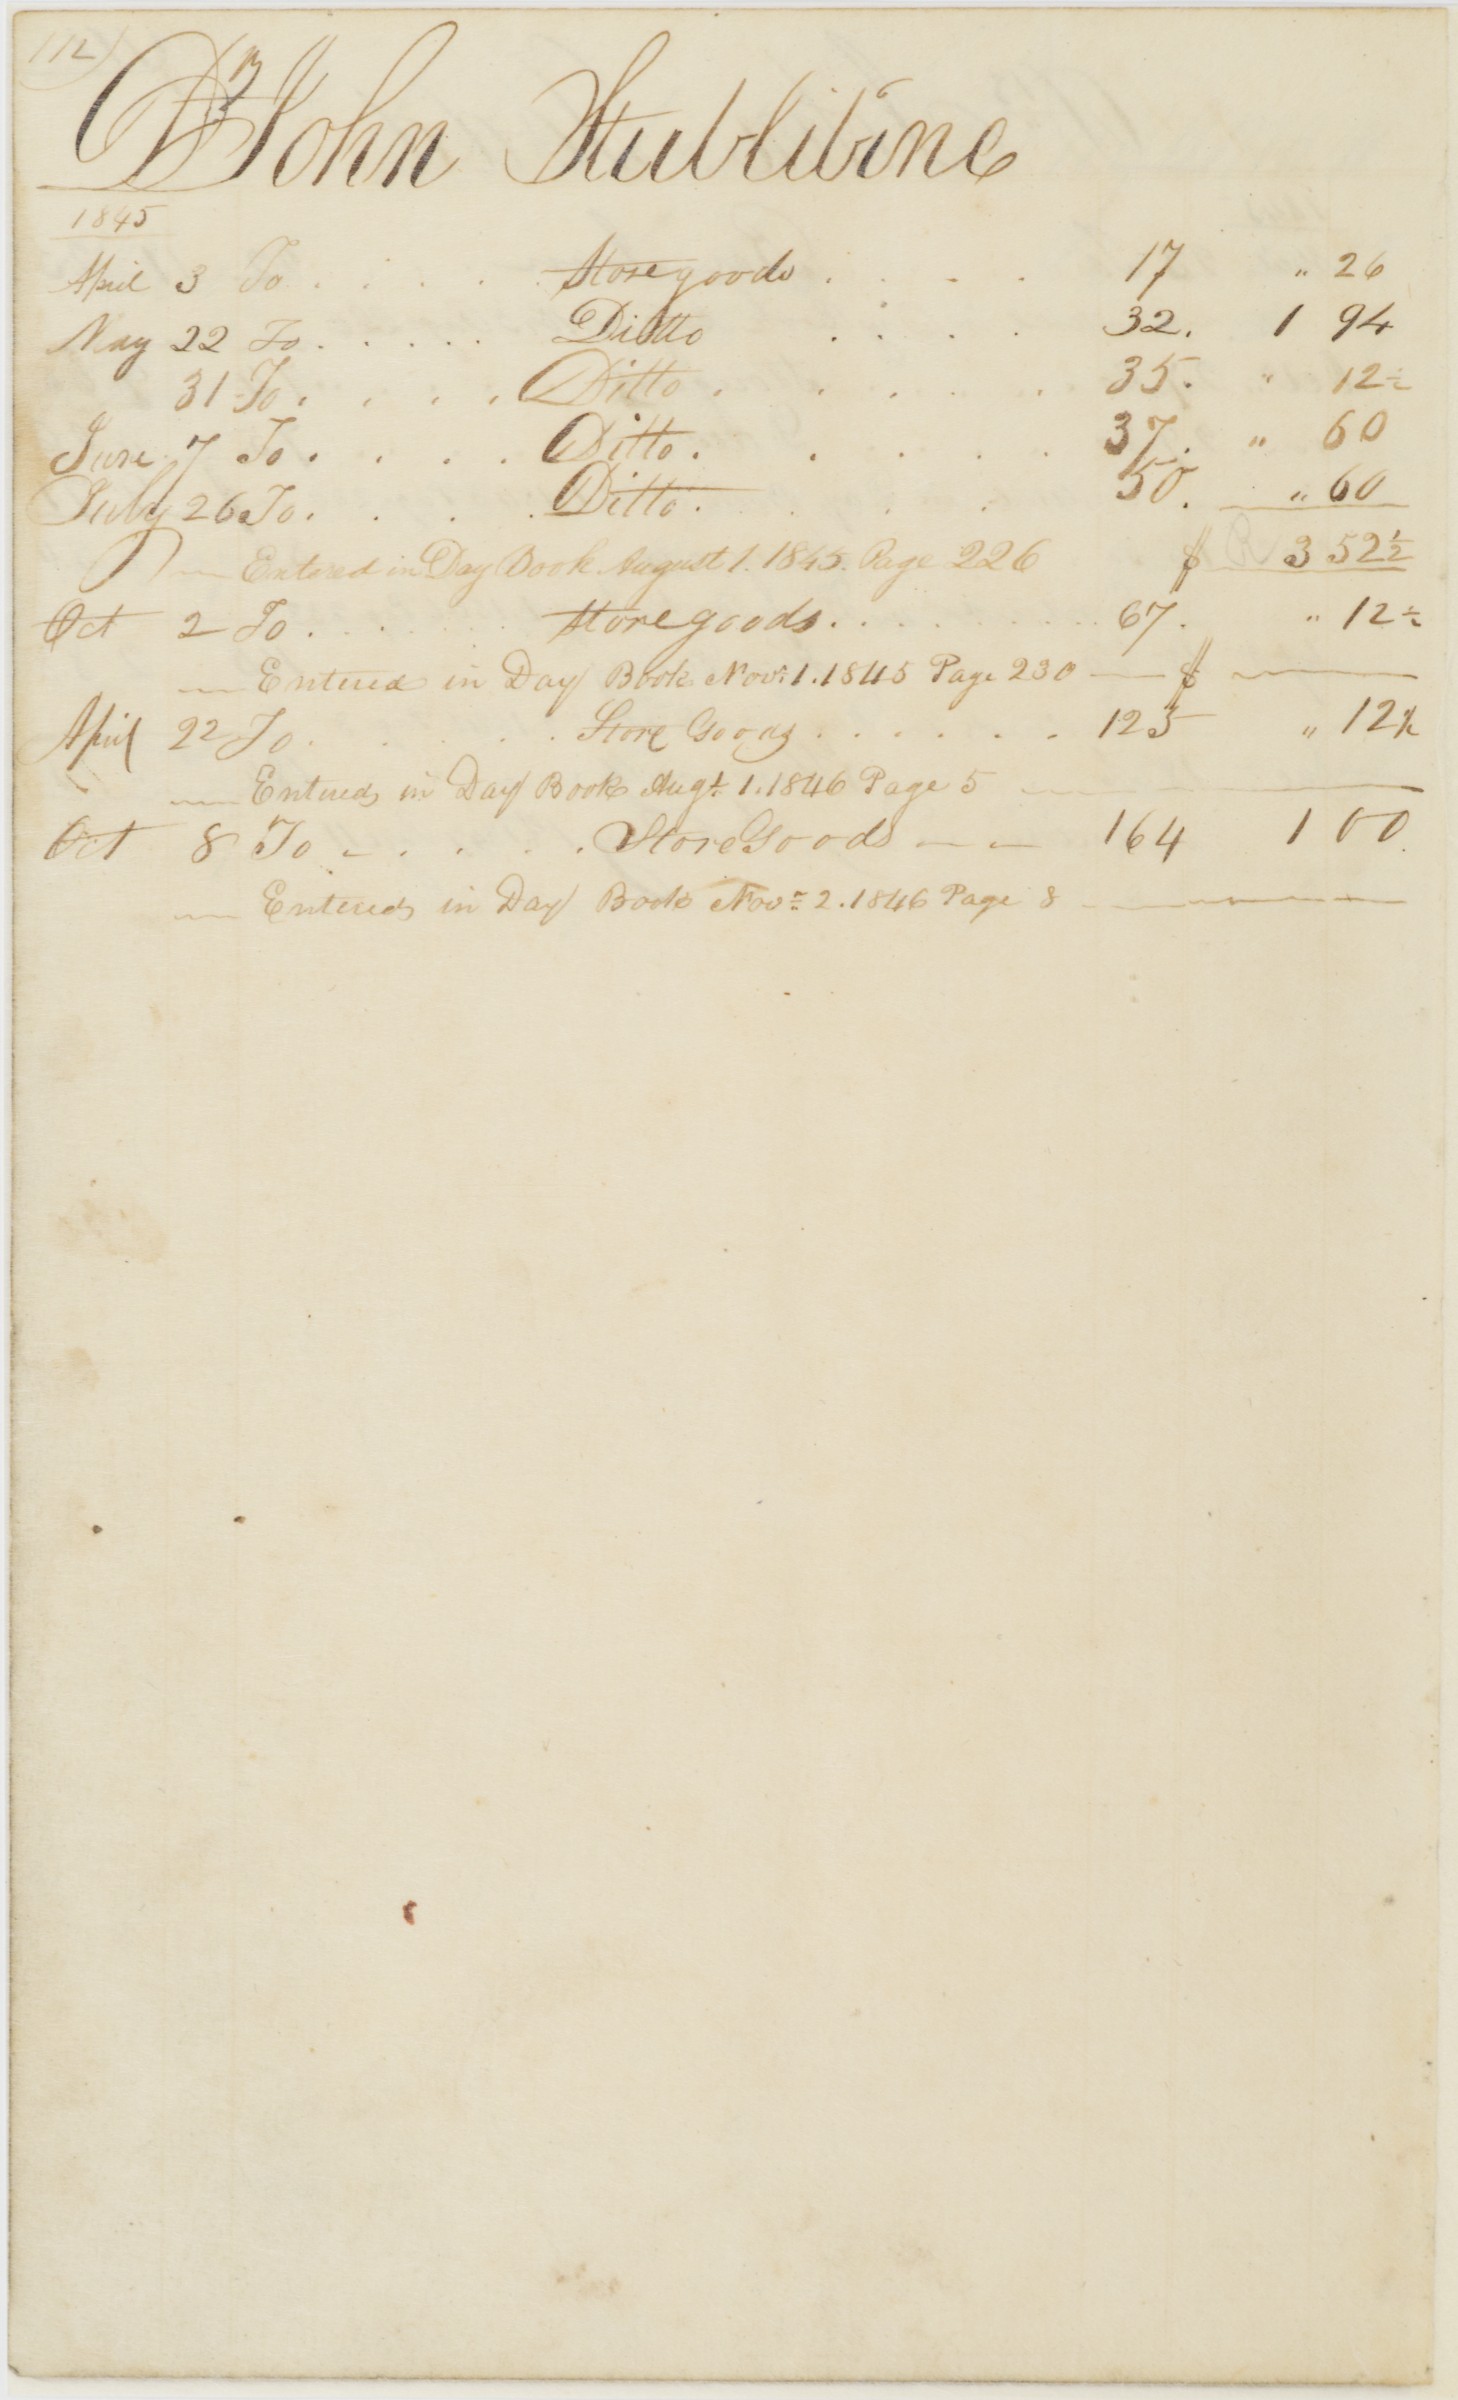 112
Dr John Stublibine
1845
April 3 To . . . . . Store goods . . . . 17 " 26
May 22 To . . . . . Ditto . . . . 32. 1 94
31 To . . . . Ditto . . . . . 35. " 12½
June 7 To . . . . Ditto . . . . 37. " 60
July 26 To . . . . Ditto . . . . 50. " 60
Entered in Day Book August 1. 1845. Page 226 $ 3 52½
Oct 2 To . . . . . Store goods . . . . . 67. " 12½
Entered in Day Book Nov. 1. 1845 Page 230 — $ —
April 22 To . . . . . Store Goods . . . . . . 123 " 12½
Entered in Day Book Augt. 1. 1846 Page 5 —
Oct 8 To . . . . . Store Goods — — 164 1 00.
Entered in Day Book Novr 2. 1846 Page 8 —